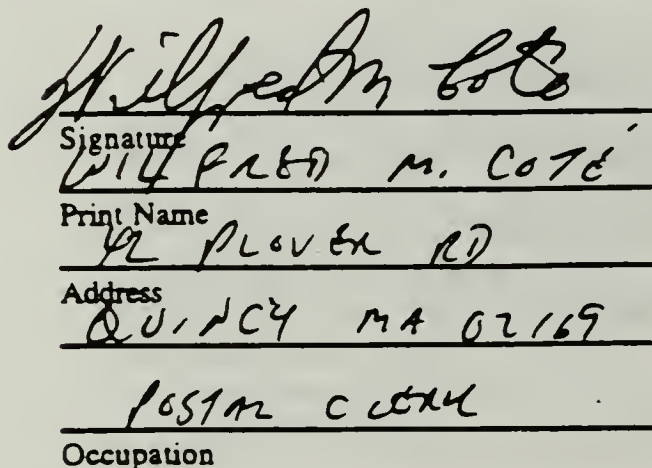 Wilfred M Cote
Signature
WILFRED M. COTÉ
Print Name
42 PLOVER RD
Address
QUINCY MA 02169
POSTAL CLERK
Occupation